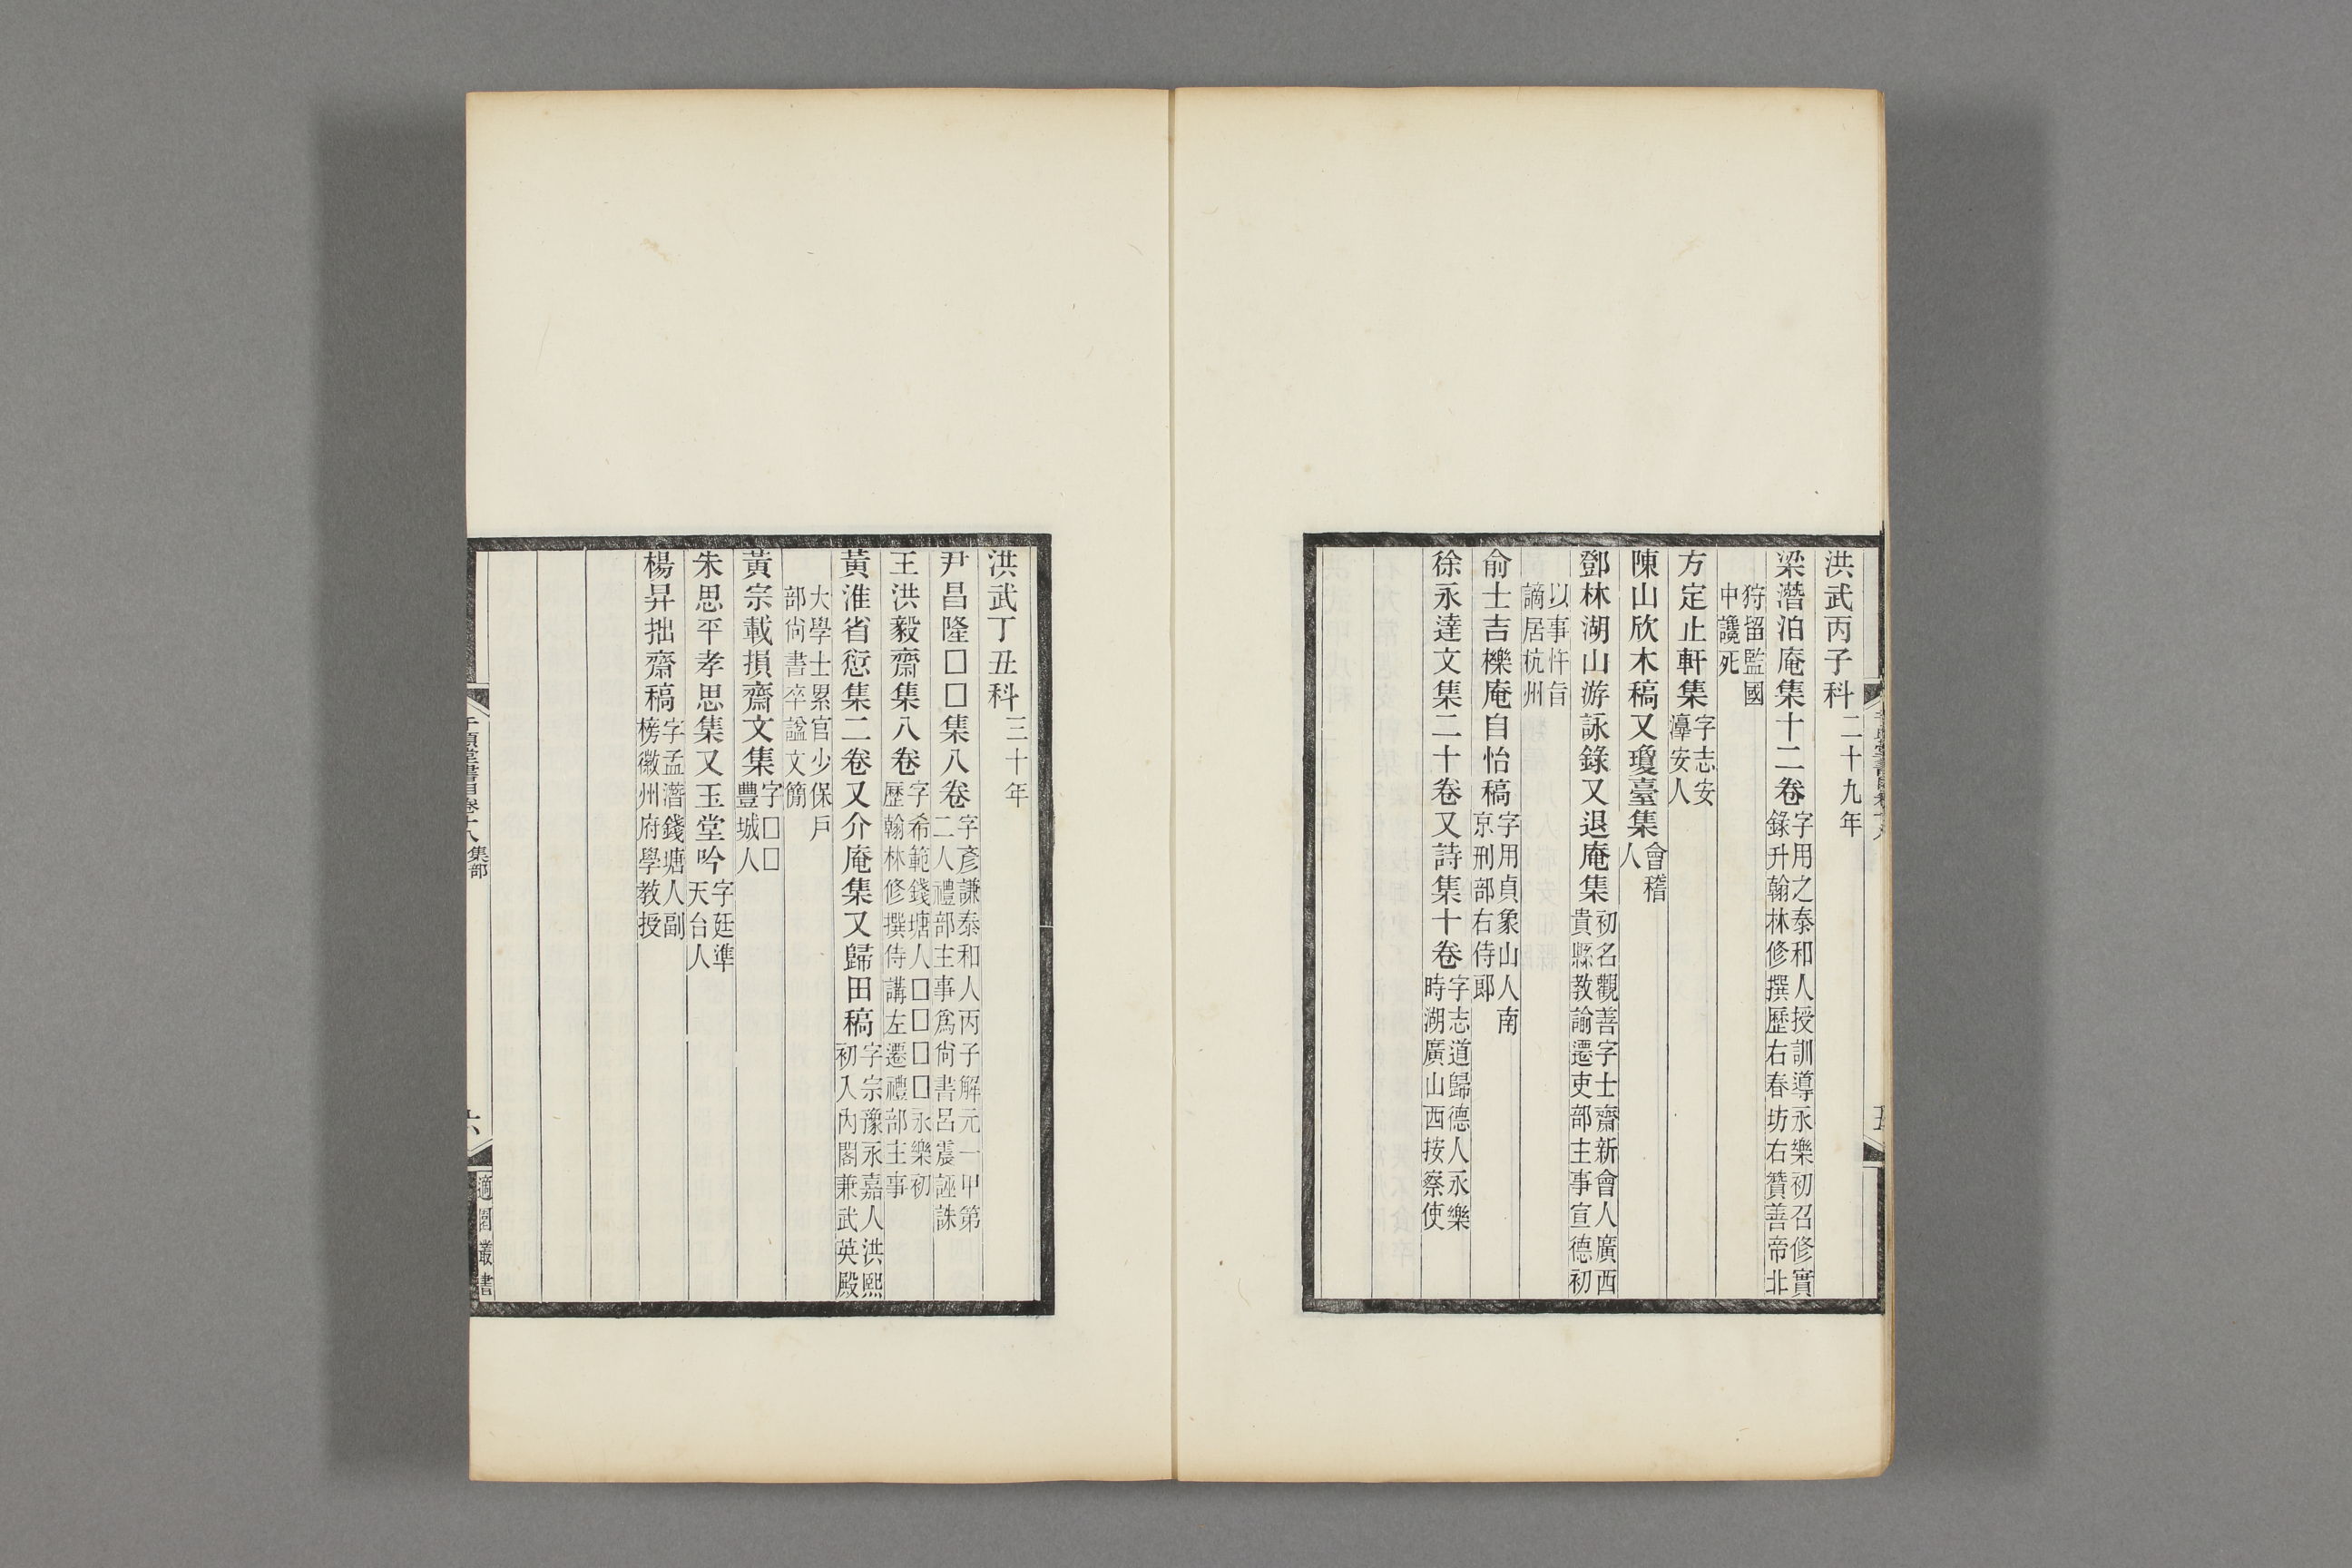 洪武丙子科二十九年
梁潛泊庵集十二卷字用之泰和人授訓導永樂初召修實
錄升翰林修撰歷右春坊右贊善帝北
狩留監國
中讒死
方定止軒集字志安
漳安人
陳山欣木稿又瓊臺集會稽
人
鄧林湖山游詠錄又退庵集初名觀善字士齋新會人廣西
貴縣教諭遷吏部主事宣德初
以事忤旨
謫居杭州
俞士吉櫟庵自怡稿字用貞象山人南
京刑部右侍郎
徐永達文集二十卷又詩集十卷字志道歸德人永樂
時湖廣山西按察使
洪武丁丑科三十年
尹昌隆□□集八卷字彥謙泰和人丙子解元一甲第
二人禮部主事爲尙書呂震誣誅
王洪毅齋集八卷字希範錢塘人□□□□永樂初
歷翰林修撰侍講左遷禮部主事
黃淮省愆集二卷又介庵集又歸田稿字宗豫永嘉人洪熙
初入內閣兼武英殿
大學士累官少保戶
部尙書卒諡文簡
黃宗載損齋文集字□□
豐城人
朱思平孝思集又玉堂吟字廷準
天台人
楊昇拙齋稿字孟潛錢塘人副
榜徽州府學教授
千頃堂書目卷十八 集部
六
適園叢書